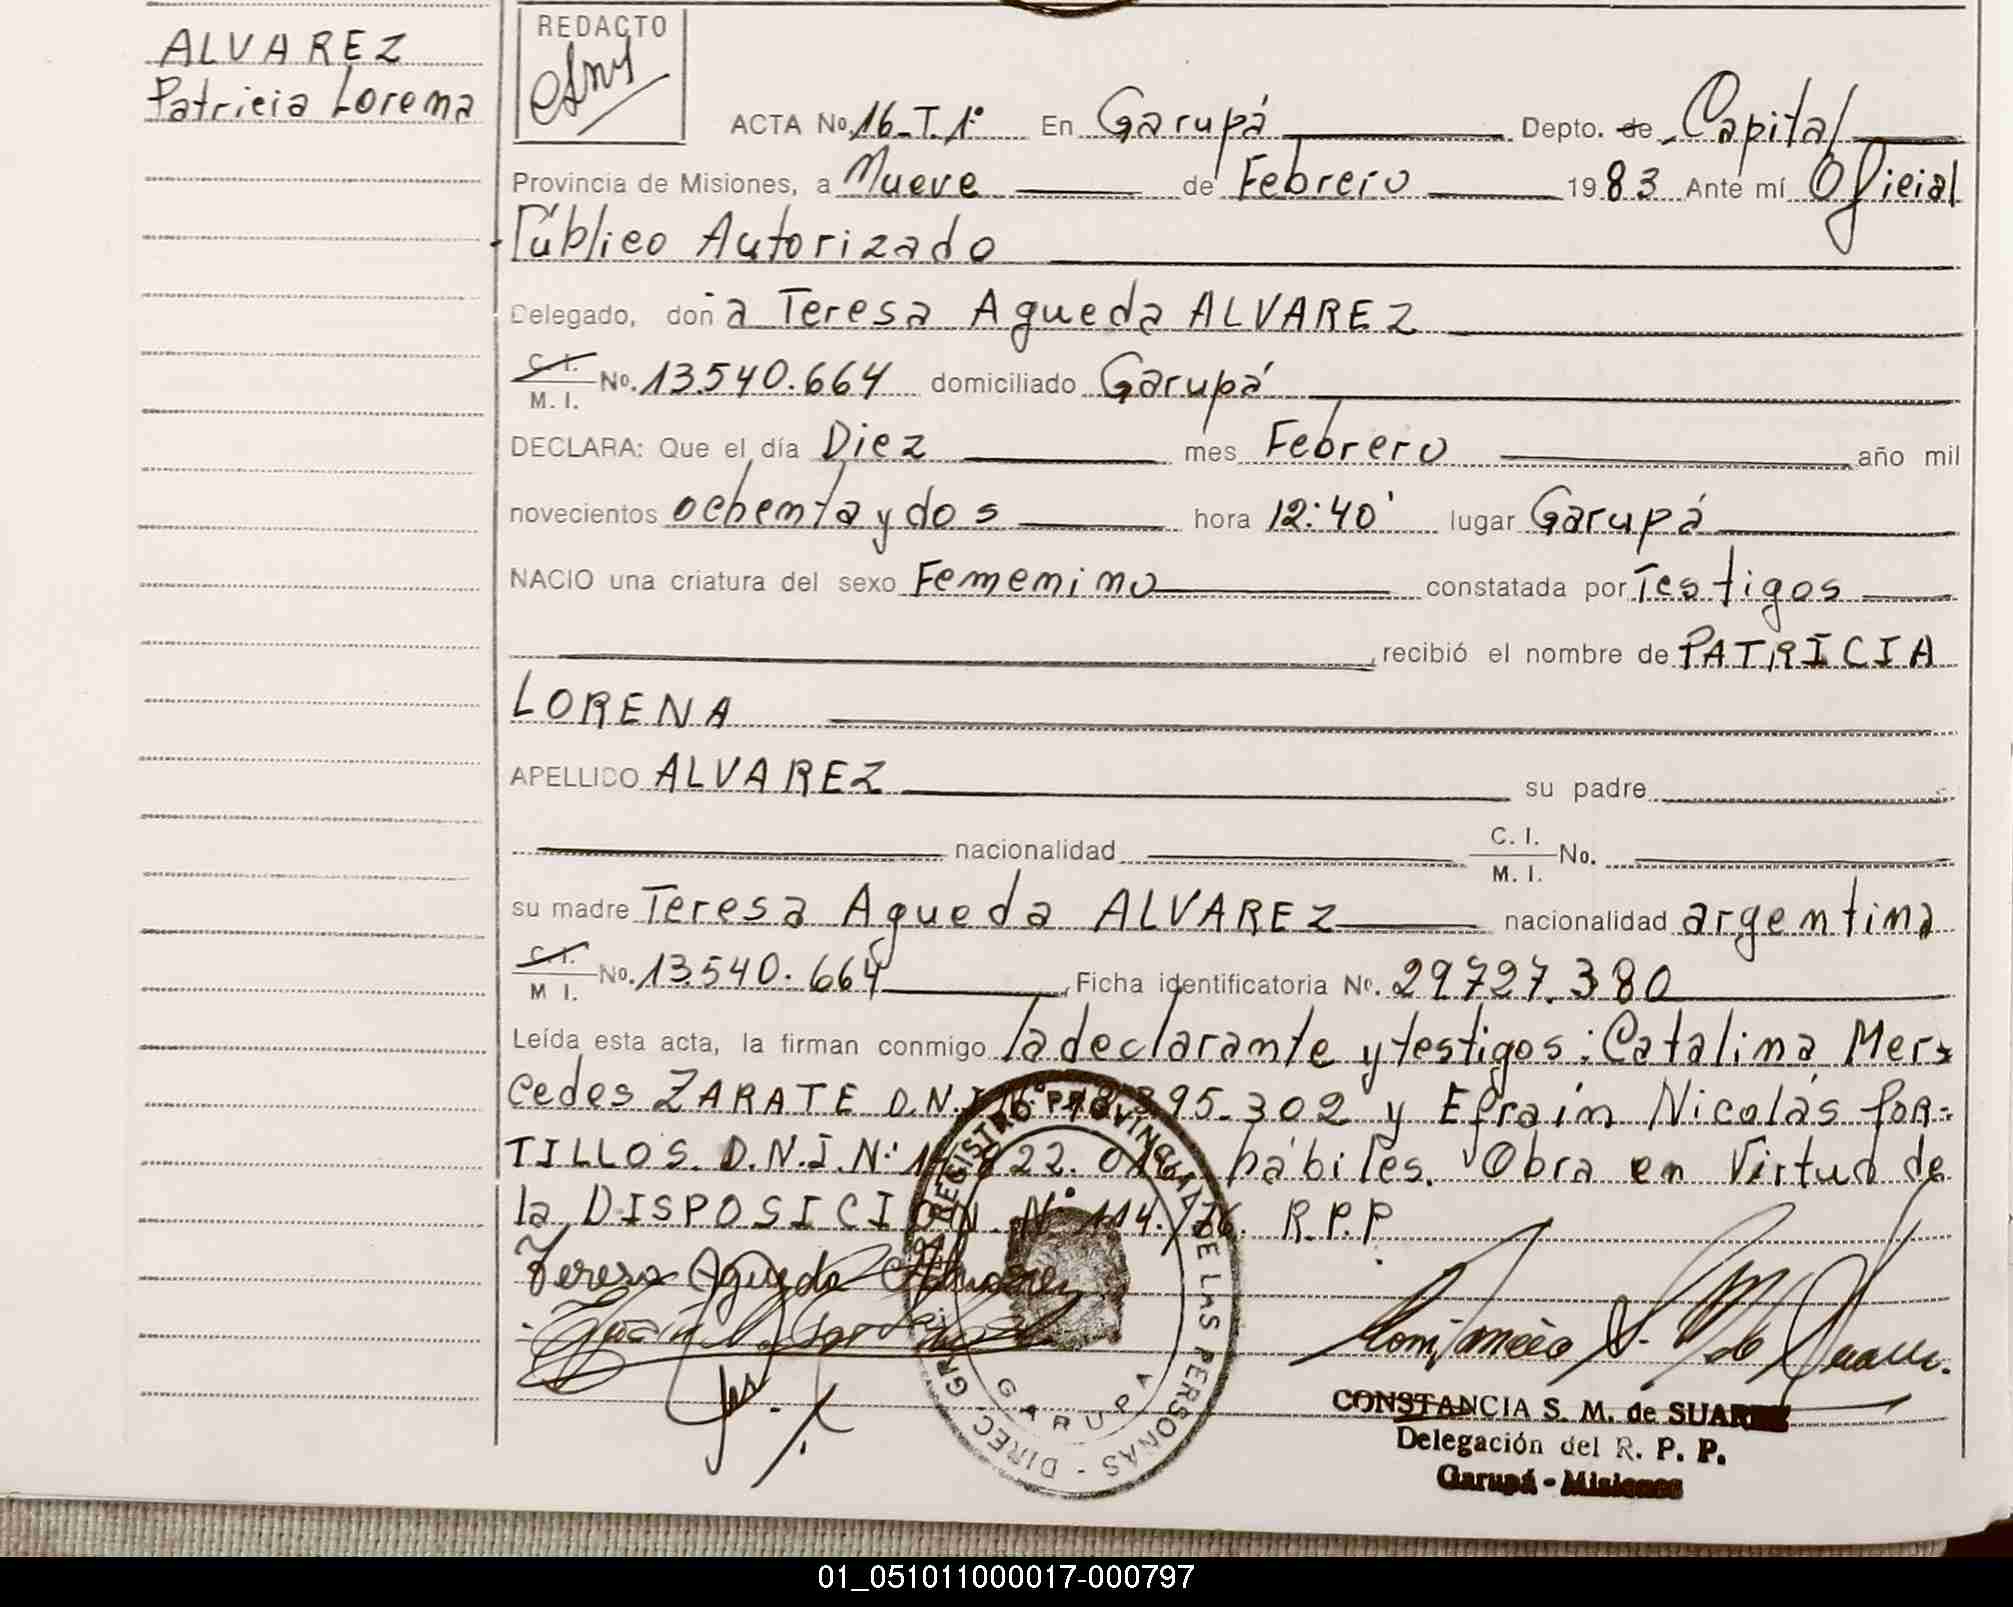 ALVAREZ
Patricia Lorena
REDACTO
ACTA No. 16-T.1º En Garupá Depto. de Capital
Provincia de Misiones, a Nueve de Febrero 1983 Ante mí Oficial
Público Autorizado
Delegado, doña Teresa Agueda ALVAREZ
C. I.
M. I. No. 13.540.664 domiciliado Garupá
DECLARA: Que el día Diez mes Febrero año mil
novecientos ochenta y dos hora 12:40' lugar Garupá
NACIO una criatura del sexo Femenino constatada por Testigos
, recibió el nombre de PATRICIA
LORENA
APELLIDO ALVAREZ su padre
nacionalidad C. I.
M. I. No.
su madre Teresa Agueda ALVAREZ nacionalidad argentina
C. I.
M. I. No. 13.540.664, Ficha identificatoria No. 29.727.380
Leída esta acta, la firman conmigo la declarante y testigos: Catalina Mer-
cedes ZARATE D.N.I. 395.302 y Efraín Nicolás POR-
TILLOS. D.N.I.Nº 822. hábiles. Obra en Virtud de
la DISPOSICION Nº 114./76. R.P.P.
Teresa Agueda Alvarez
REGISTRO PROVINCIAL DE LAS PERSONAS - DIREC. GRAL.
GARUPA
CONSTANCIA S. M. de SUAREZ
Delegación del R. P. P.
Garupá - Misiones
01_051011000017-000797